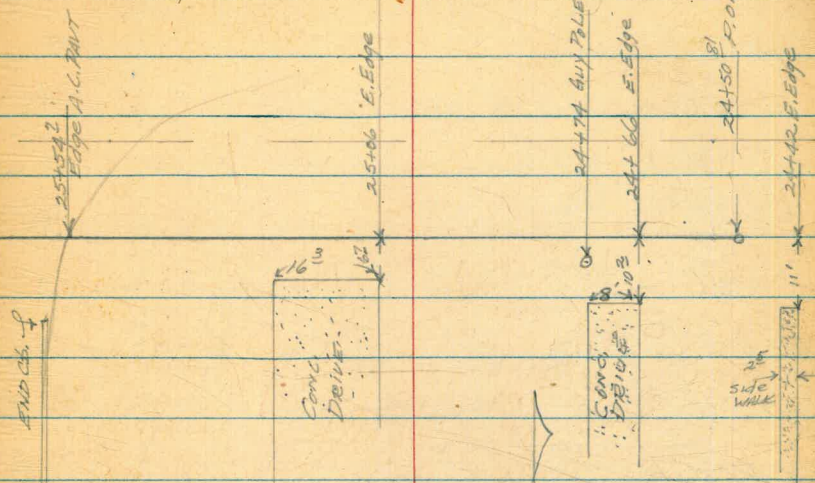 25+54²
Edge A.C. PAVT
25+06 E. Edge
24+74 Guy POLE
24+66 E. Edge
24+50⁸¹ P.O.
24+42 E. Edge
END CB.
16
CONC.
DRIVE
8
10³
CONC.
DRIVE
11'
side
WALK